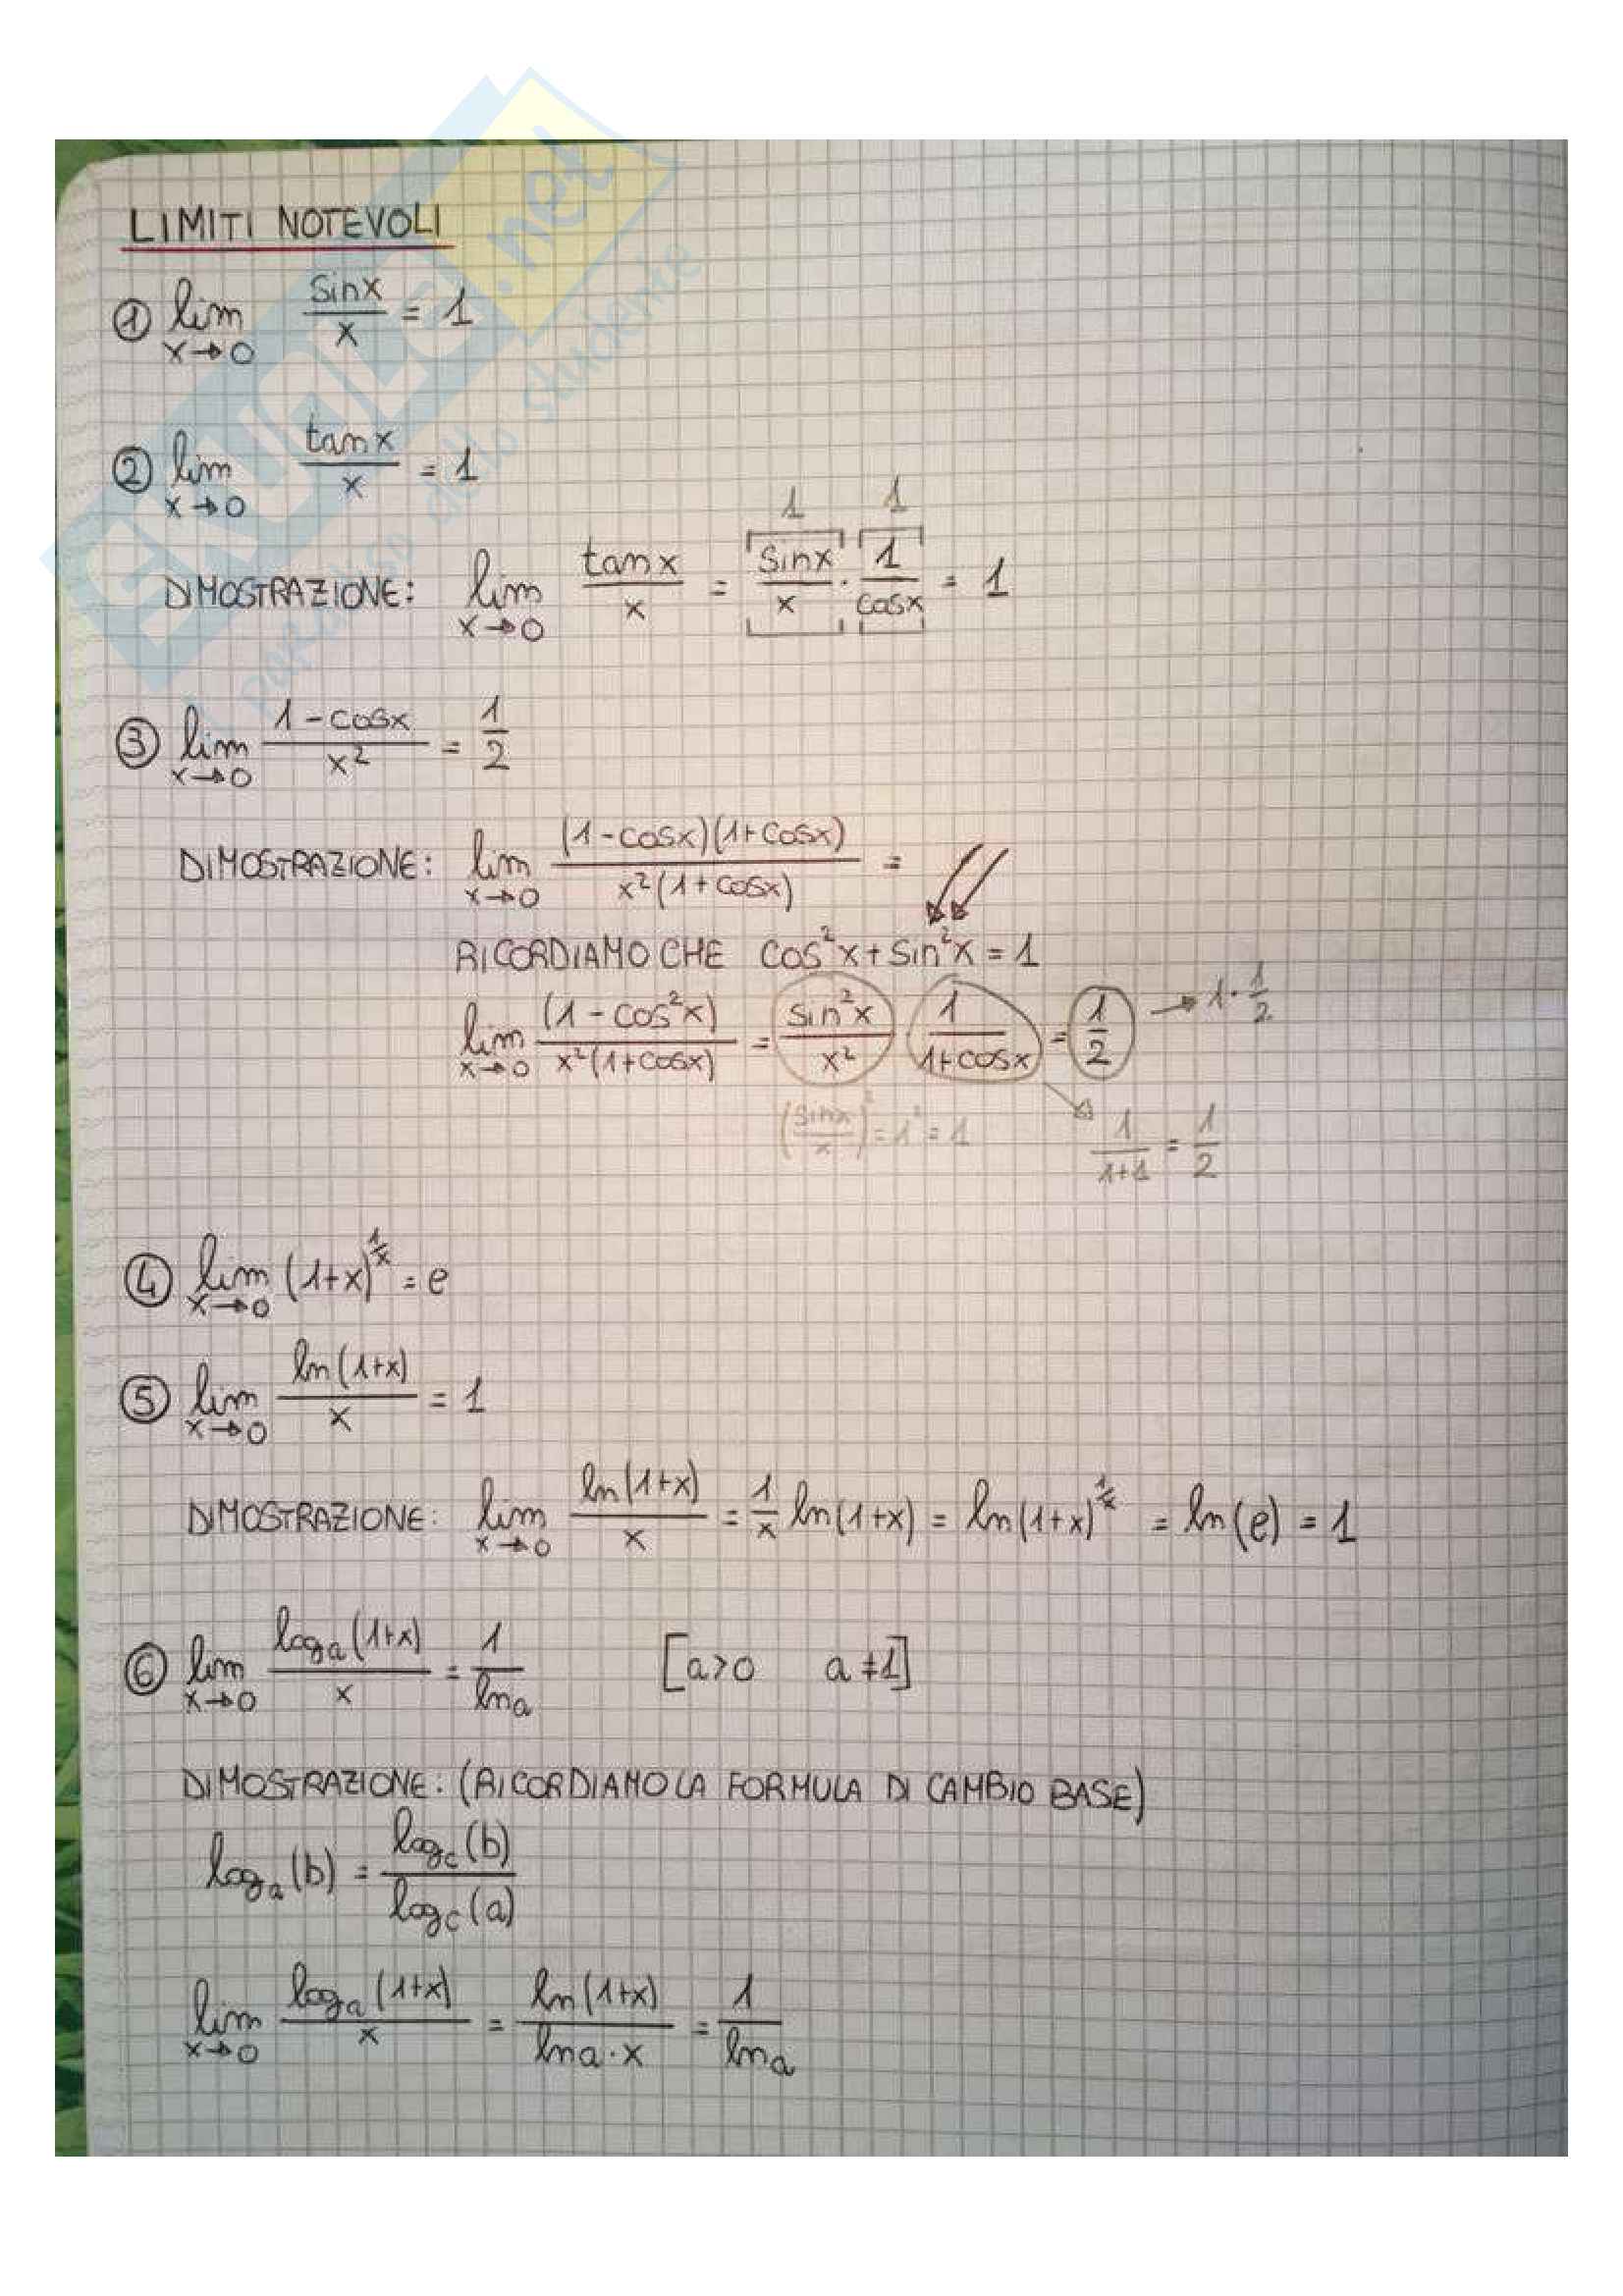 LIMITI NOTEVOLI
① lim x→0 sinx/x = 1
② lim x→0 tanx/x = 1
1 1
DIMOSTRAZIONE: lim x→0 tanx/x = sinx/x · 1/cosx = 1
③ lim x→0 1-cosx/x² = 1/2
DIMOSTRAZIONE: lim x→0 (1-cosx)(1+cosx)/x²(1+cosx) =
RICORDIAMO CHE cos²x+sin²x = 1
lim x→0 (1-cos²x)/x²(1+cosx) = sin²x/x² 1/1+cosx = 1/2 → 1·1/2
(sinx/x)² = 1² = 1 1/1+1 = 1/2
④ lim x→0 (1+x)^1/x = e
⑤ lim x→0 ln(1+x)/x = 1
DIMOSTRAZIONE: lim x→0 ln(1+x)/x = 1/x ln(1+x) = ln(1+x)^1/x = ln(e) = 1
⑥ lim x→0 logₐ(1+x)/x = 1/lna [a>0 a≠1]
DIMOSTRAZIONE: (RICORDIAMO LA FORMULA DI CAMBIO BASE)
logₐ(b) = log_c(b)/log_c(a)
lim x→0 logₐ(1+x)/x = ln(1+x)/lna·x = 1/lna
SKUOLA.net
il paradiso dello studente